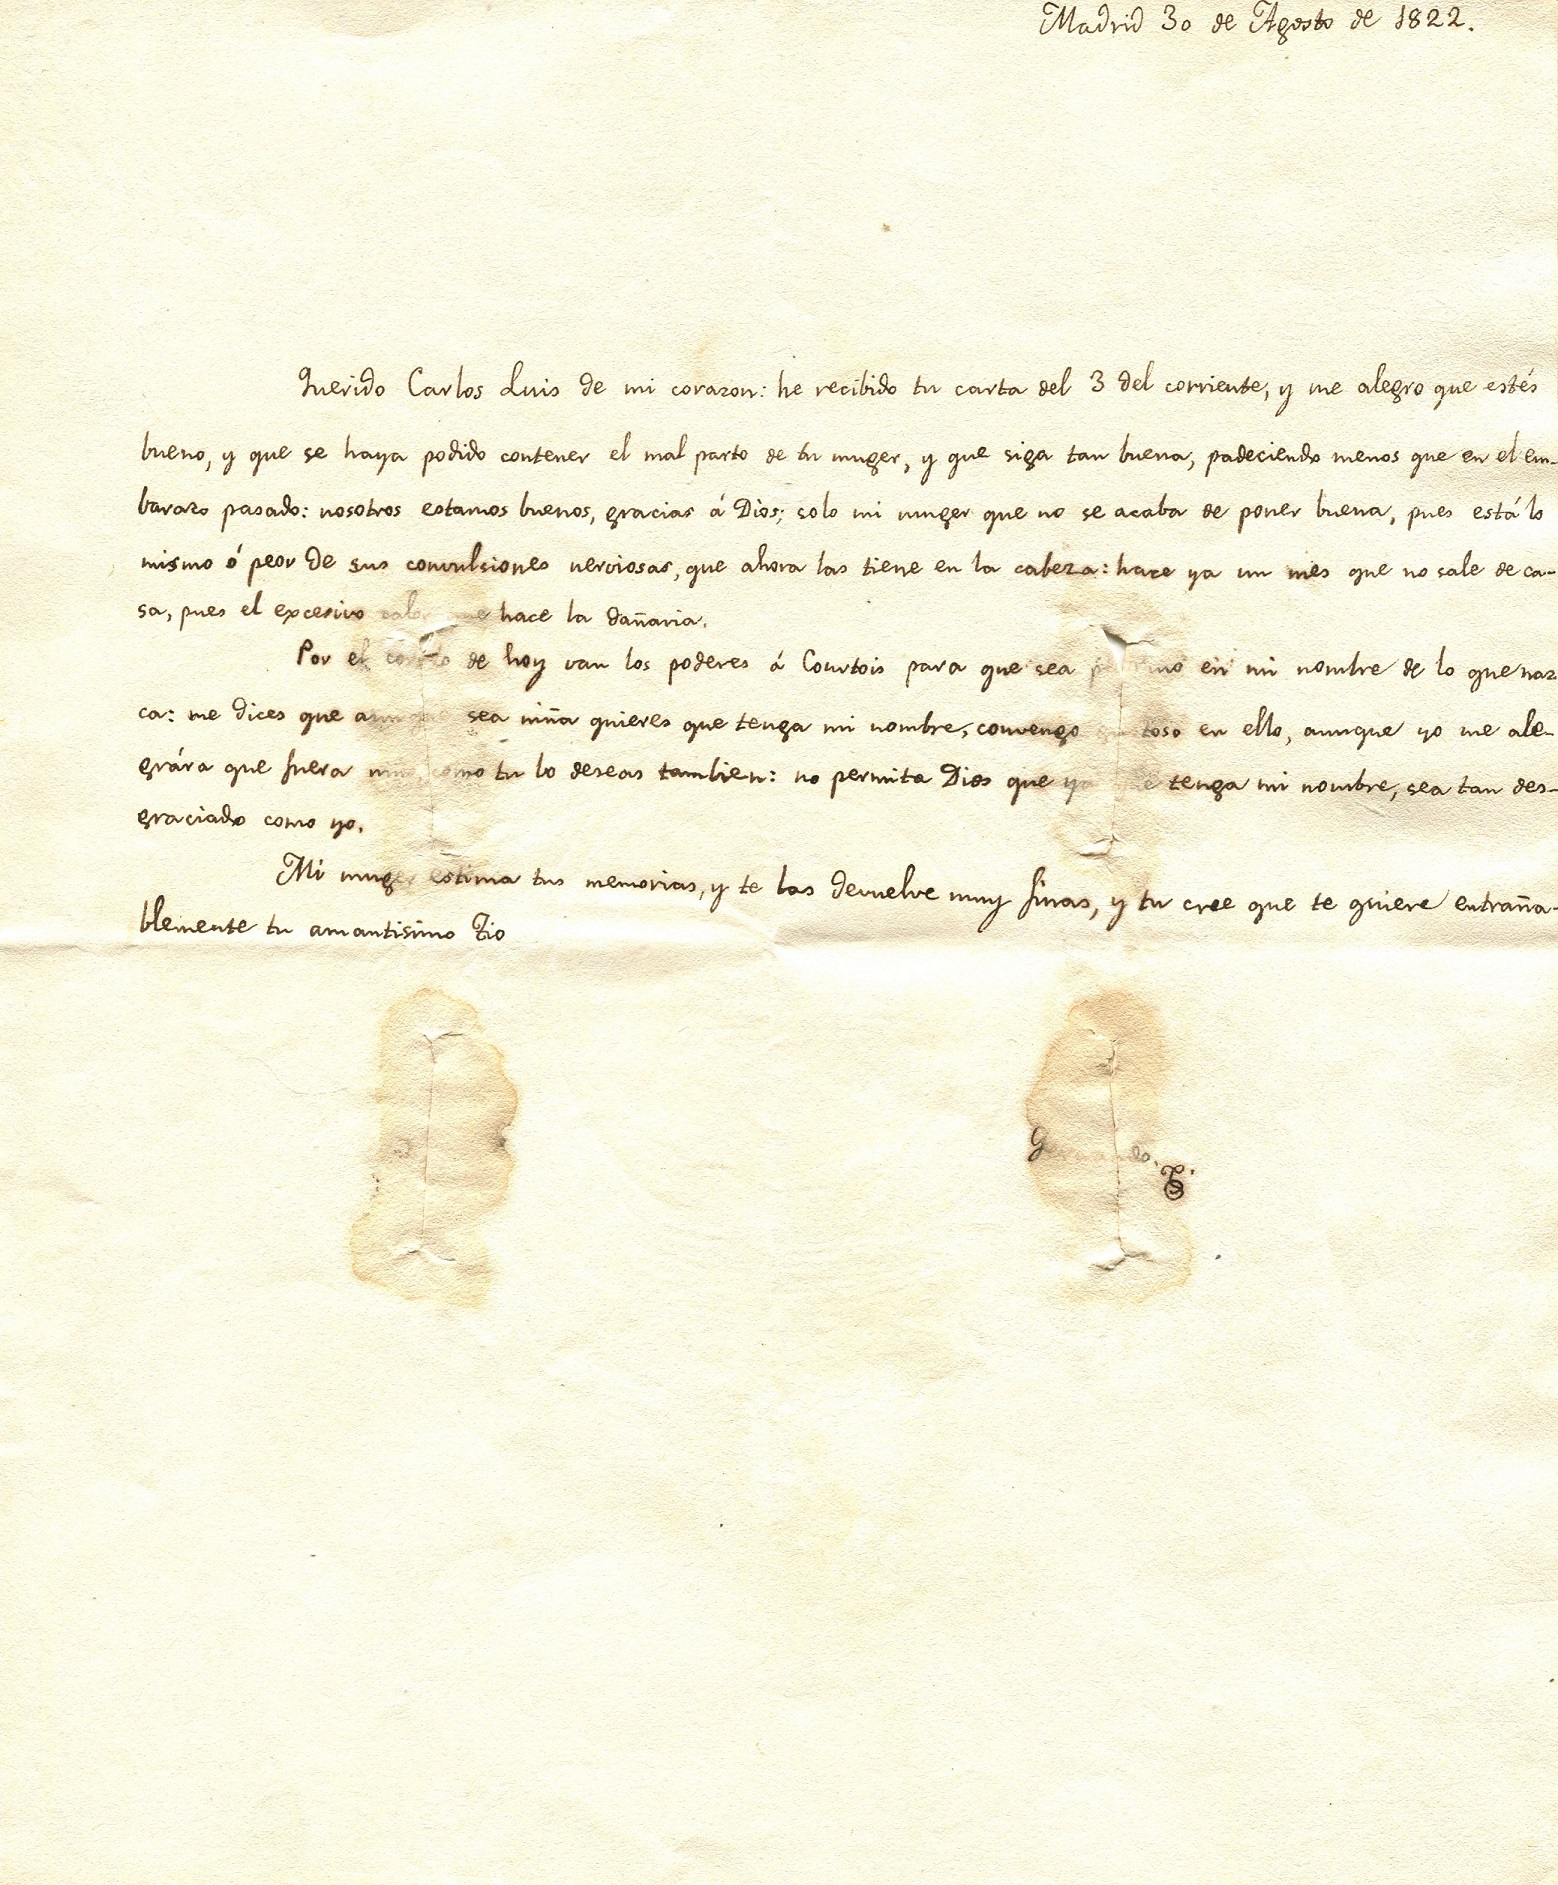 Madrid 30 de Agosto de 1822.
Querido Carlos Luis de mi corazon: he recibido tu carta del 3 del corriente, y me alegro que estés
bueno, y que se haya podido contener el mal parto de tu muger, y que siga tan buena, padeciendo menos que en el em-
barazo pasado: nosotros estamos buenos, gracias á Dios; solo mi muger que no se acaba de poner buena, pues está lo
mismo ó peor de sus convulsiones nerviosas, que ahora las tiene en la cabeza: hace ya un mes que no sale de ca-
sa, pues el excesivo calor que hace la dañaria.
Por el correo de hoy van los poderes á Courtois para que sea padrino en mi nombre de lo que naz
ca: me dices que aunque sea niña quieres que tenga mi nombre, convengo gustoso en ello, aunque yo me ale-
grára que fuera niño, como tu lo deseas tambien: no permita Dios que ya que tenga mi nombre, sea tan des-
graciado como yo.
Mi muger estima tus memorias, y te las devuelve muy finas, y tu cree que te quiere entraña-
blemente tu amantisimo Tio